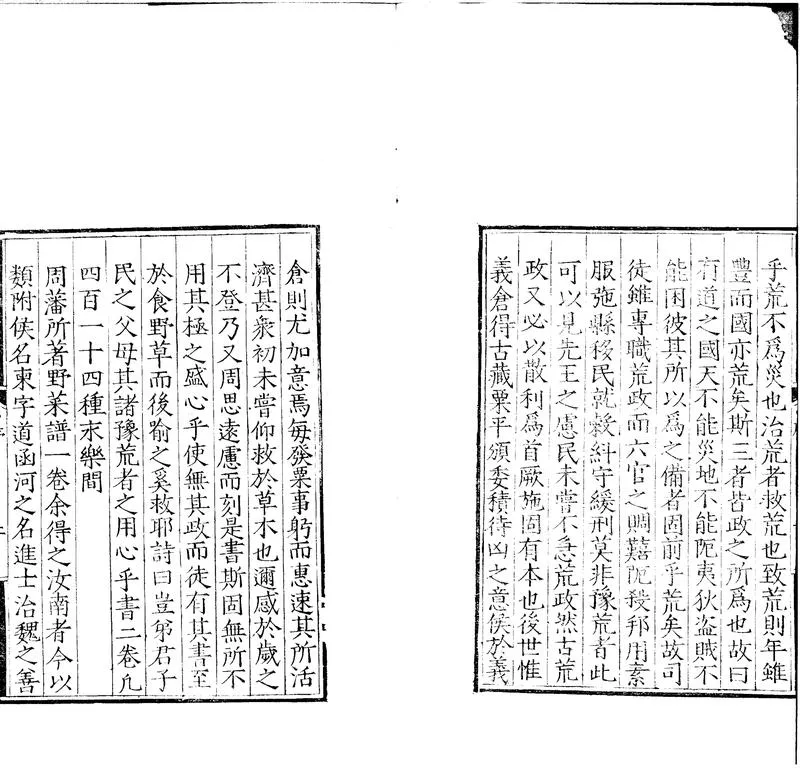 乎荒不爲災也治荒者救荒也致荒則年雖
豐而國亦荒矣斯三者皆政之所爲也故曰
有道之國天不能災地不能阨夷狄盜賊不
能困彼其所以爲之備者固前乎荒矣故司
徒雖專職荒政而六官之賙囏阨殺邦用素
服弛縣移民就穀糾守緩刑莫非豫荒者此
可以見先王之慮民未嘗不急荒政然古荒
政又必以散利爲首厥施固有本也後世惟
義倉得古藏粟平頒委積待凶之意侯於義
倉則尤加意焉每發粟事躬而惠速其所活
濟甚衆初未嘗仰救於草木也邇感於歲之
不登乃又周思遠慮而刻是書斯固無所不
用其極之盛心乎使無其政而徒有其書至
於食野草而後喻之奚救耶詩曰豈弟君子
民之父母其諸豫荒者之用心乎書二卷凡
四百一十四種末樂間
周藩所著野菜譜一卷余得之汝南者今以
類附侯名東字道函河之名進士治魏之善